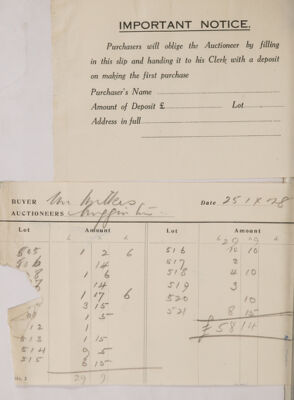 IMPORTANT NOTICE.
Purchasers will oblige the Auctioneer by filling
in this slip and handing it to his Clerk with a deposit
on making the first purchase
Purchaser's Name
Amount of Deposit £ Lot
Address in full
BUYER
AUCTIONEERS
Date 25 IX 28
Lot Amount Lot Amount
505 1 2 6 516 10
14 517 3
1 6 518 4 10
14 519 3
1 17 6 520 10
3 15 521 8 15
1 5 £58 14
12 1
513 1 15
514 9 5
515 6 15
29 9
No. 3